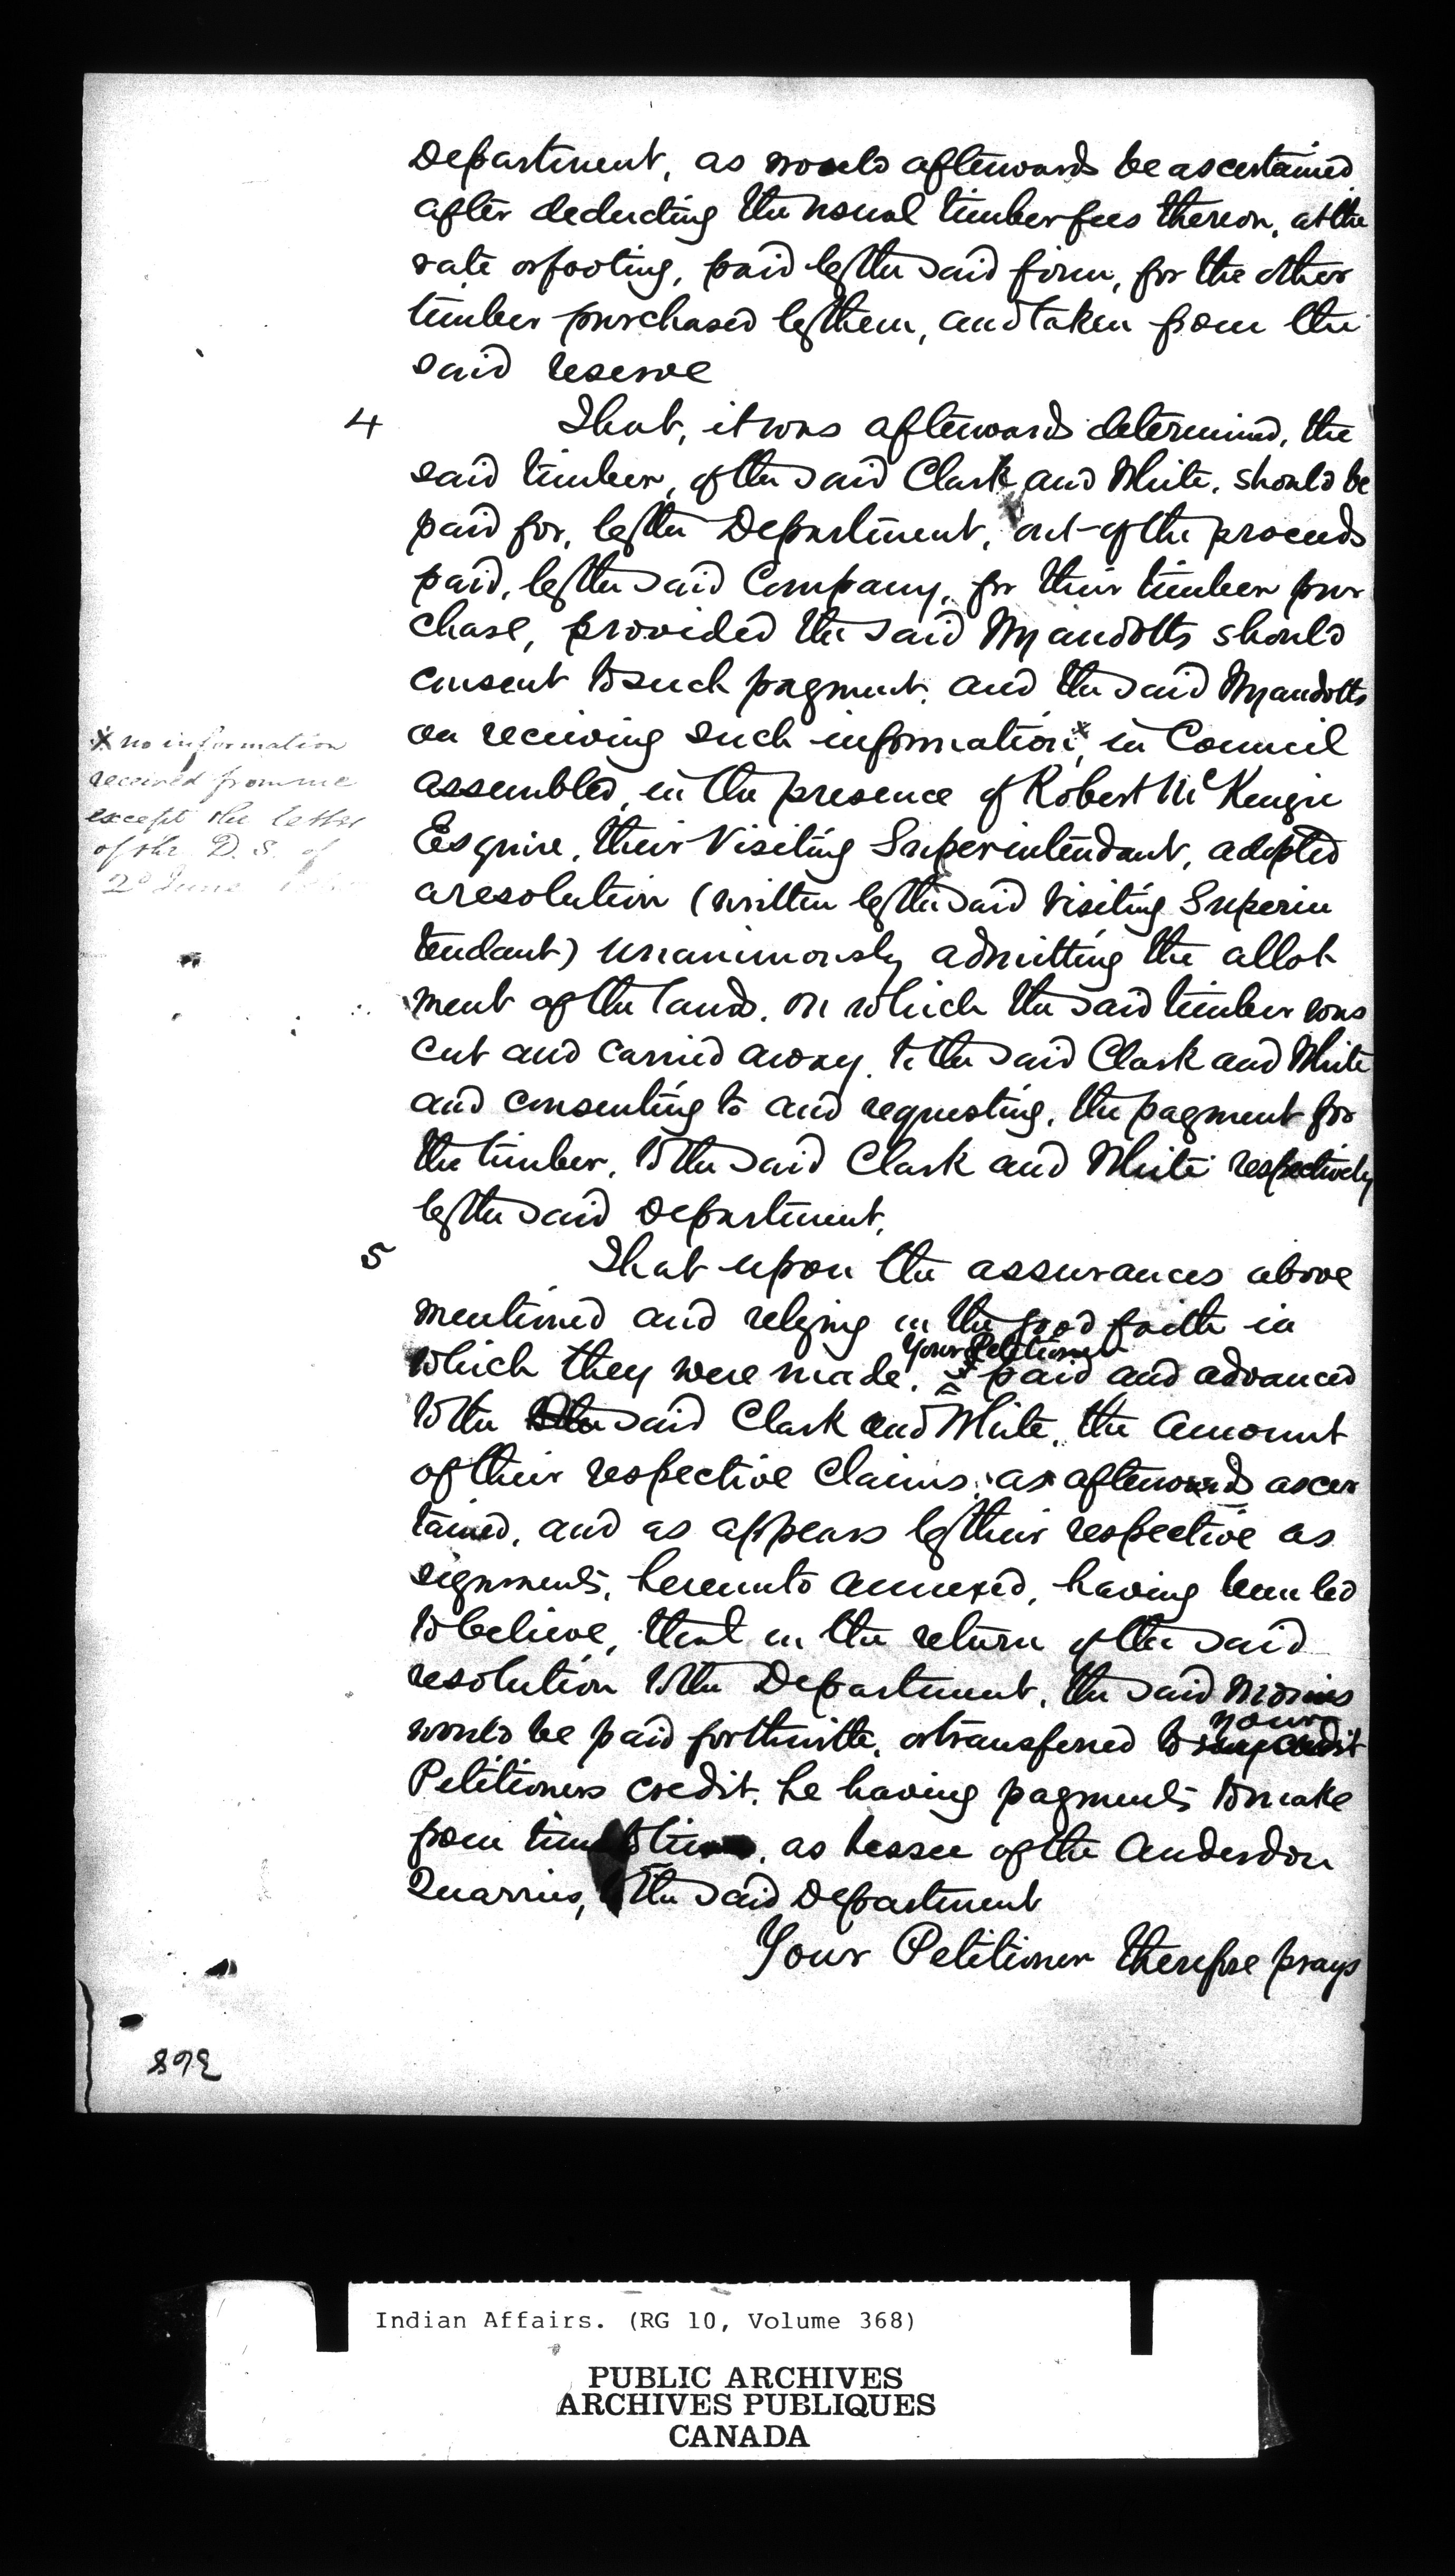 Department, as would afterwards be ascertained
after deducting the usual timber fees thereon, at the
rate or footing, paid by the said firm, for the other
timber purchased by them, and taken from the
said reserve
4 That, it was afterwards determined, the
said timber, of the said Clark and White, should be
paid for, by the Department, out of the proceeds
paid, by the said Company, for their timber pur
chase, provided the said Wyandotts should
consent to such payment, and the said Wyandotts
on receiving such information, x in Council
x no information
received from me
except the letter
of the D. S. of
2d June
assembled, in the presence of Robert McKenzie
Esquire, their Visiting Superintendant, adopted
a resolution (written by the said Visiting Superin
tendant) unanimously admitting the allot
ment of the lands, on which the said timber was
cut and carried away, to the said Clark and White
and consenting to and requesting, the payment for
the timber, to the said Clark and White respectively
by the said Department,
5 That upon the assurances above
mentioned and relying in the good faith in
which they were made, Your Petitioner paid and advanced
to the said Clark and White, the amount
of their respective claims, as afterwards ascer
tained, and as appears by their respective as
signments, hereunto annexed, having been led
to believe, that on the return of the said
resolution to the Department, the said monies
would be paid forthwith, or transferred to my credit your
Petitioners credit, he having payments to make
from time to time, as Lessee of the Anderdon
Quarries, to the said Department
Your Petitioner therefore prays
892
Indian Affairs. (RG 10, Volume 368)
PUBLIC ARCHIVES
ARCHIVES PUBLIQUES
CANADA